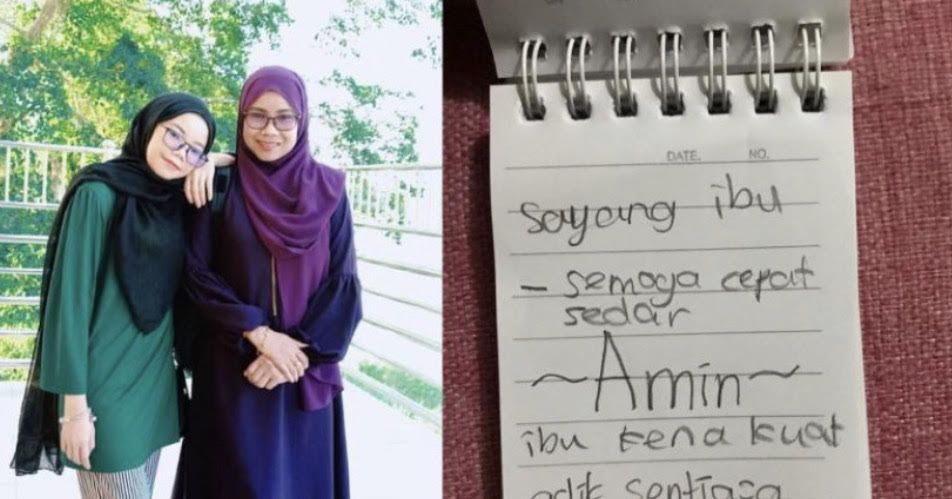 DATE. NO.
sayang ibu
- semoga cepat
sedar
~Amin~
ibu kena kuat
adik sentiasa